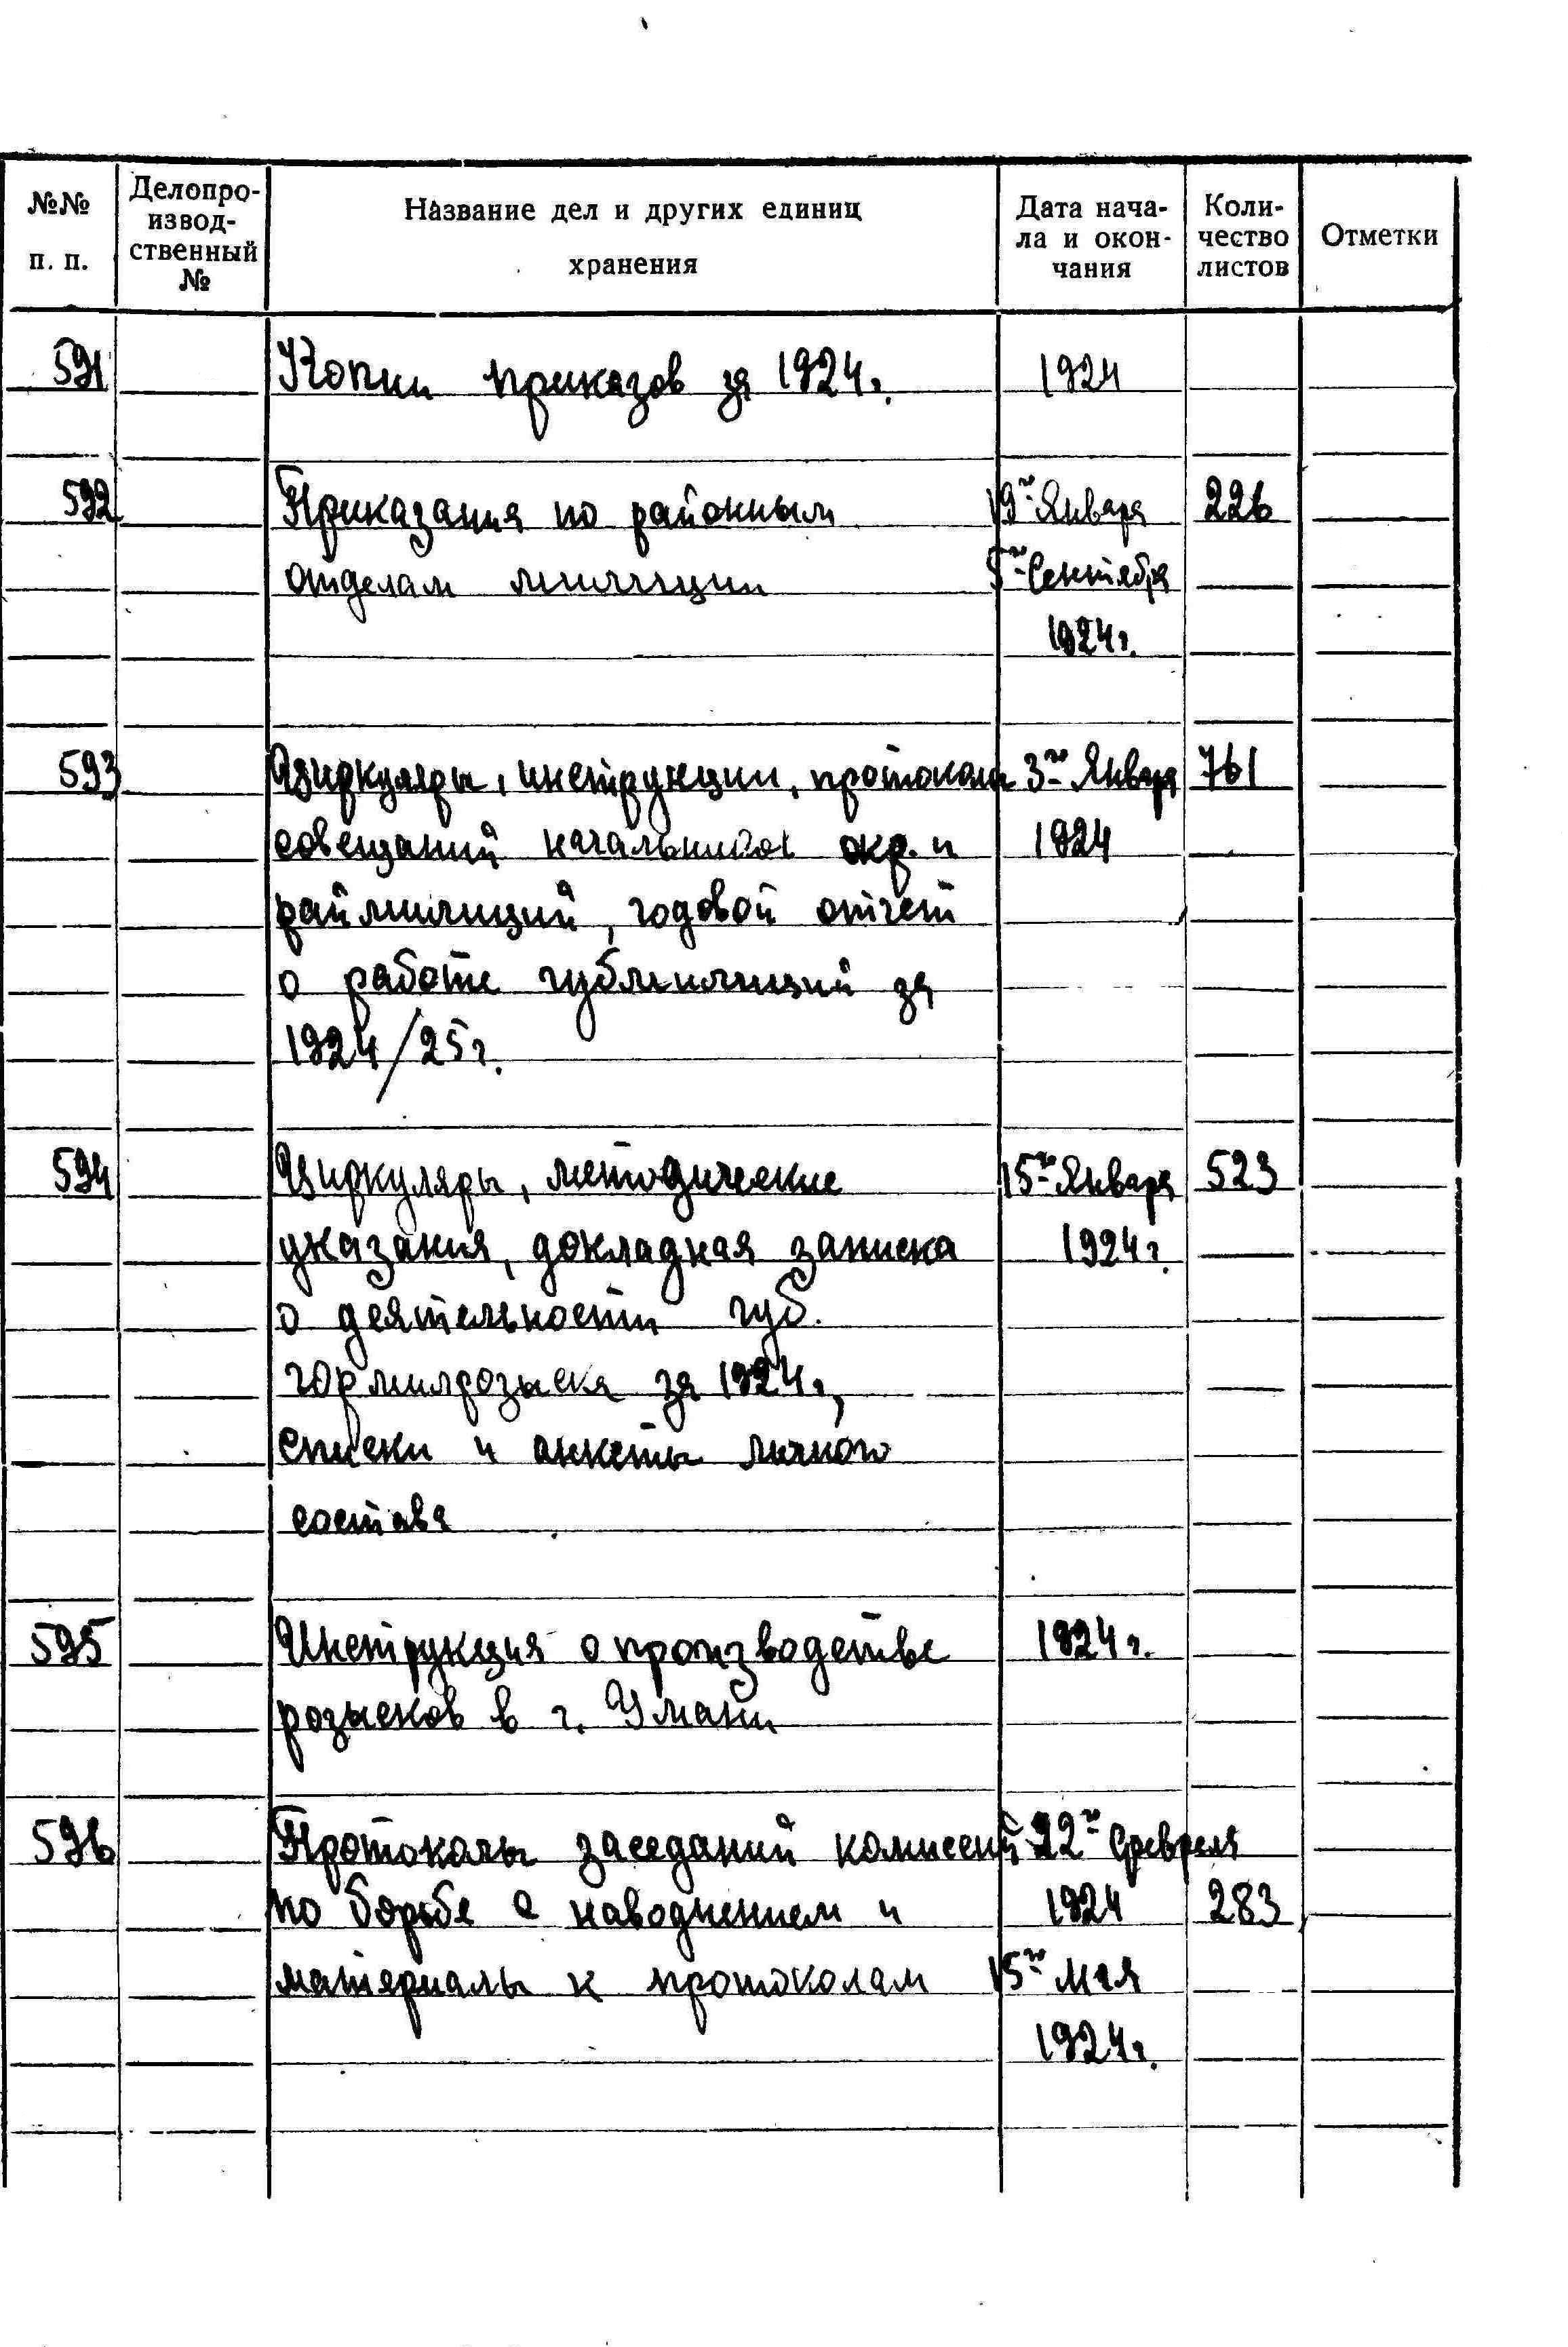 №№ п. п. Делопро-извод-ственный № Название дел и других единиц хранения Дата нача-ла и окон-чания Коли-чество листов Отметки
591 Копии приказов за 1924г. 1924
592 Приказания по районным 19го Января 226
отделам милиции 5го Сентября
1924г.
593 Циркуляры, инструкции, протокола 3го Января 761
совещаний начальников окр. и 1924
раймилиций, годовой отчет
о работе губмилиций за
1924/25г.
594 Циркуляры, методические 15го Января 523
указания, докладная записка 1924г.
о деятельности губ.
гормилрозыска за 1924г.,
списки и анкеты личного
состава
595 Инструкция о производстве 1924г.
розысков в г. Умани
596 Протоколы заседаний комиссий 22го Февраля
по борьбе с наводнением и 1924 283
материалы к протоколам 15го мая
1924г.